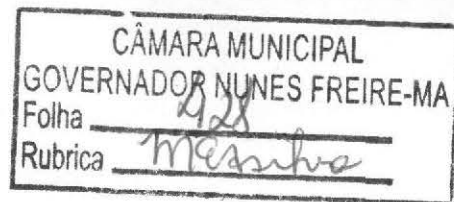 CÂMARA MUNICIPAL
GOVERNADOR NUNES FREIRE-MA
Folha 428
Rubrica